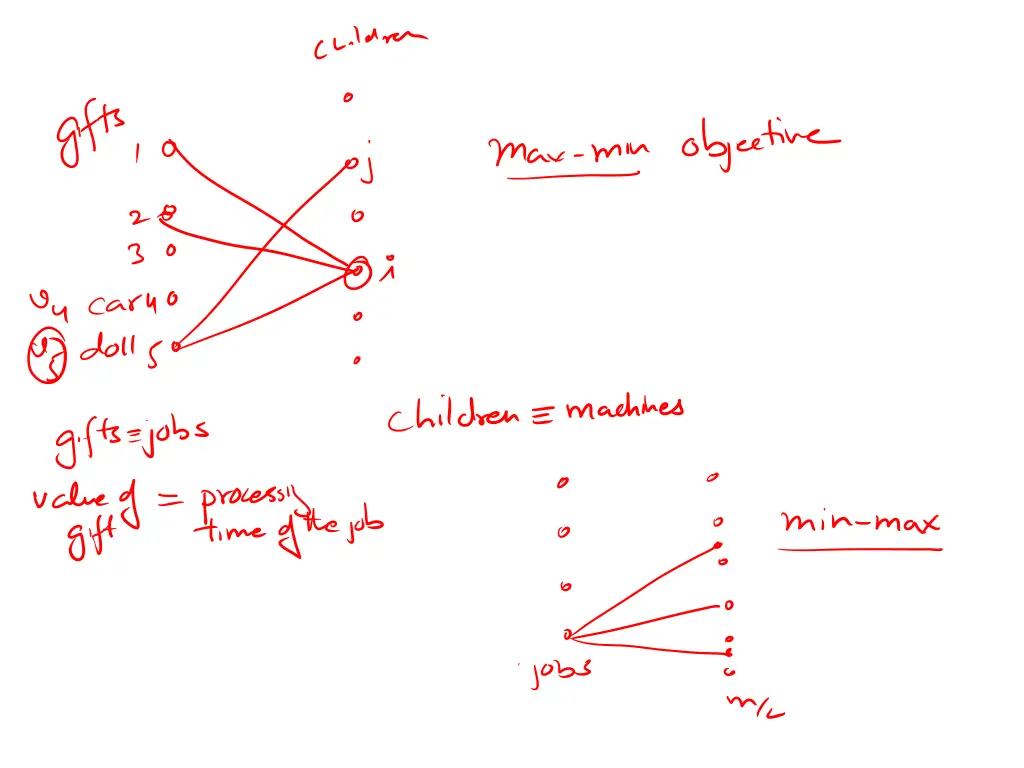 children
gifts
1
j
max-min objective
2
3
i
v4 car 4
v5 doll 5
children ≡ machines
gifts ≡ jobs
value of = processing
gift time of the job
min-max
jobs
m/c